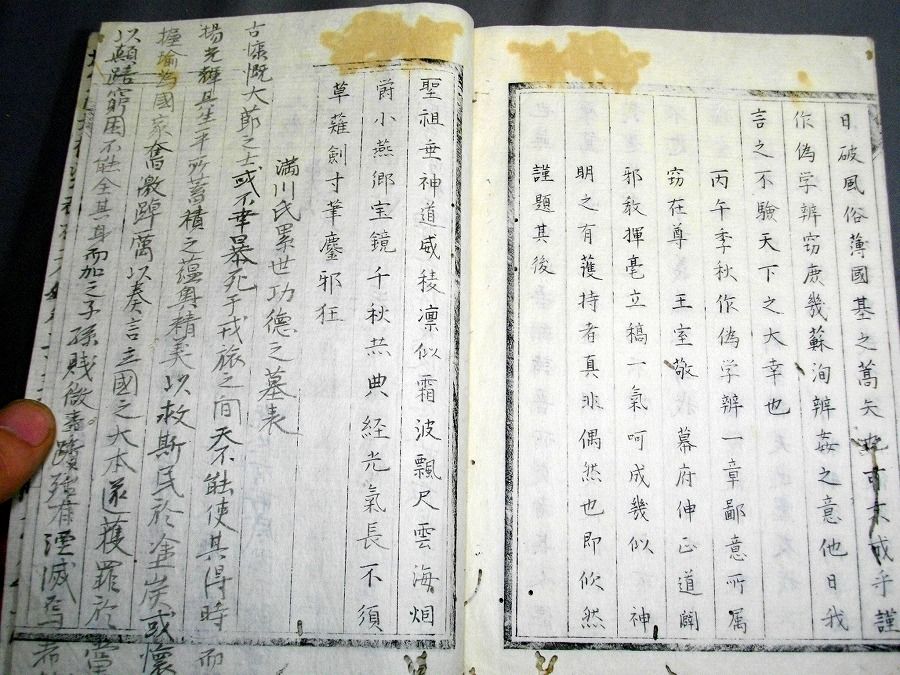 日破風俗薄國基之蒿矢 手謹
作偽学辨窃庶幾蘇洵辨姦之意他日我
言之不驗天下之大幸也
丙午季秋作偽学辨一章鄙意所属
窃在尊 王室敬 幕府伸正道闢
邪教揮毫立稿一氣呵成幾似 神
明之有護持者真非偶然也即欣然
謹題其後
聖祖垂神道威稜凛似霜波飄尺雲海烟
爵小燕郷宝鏡千秋共典経光氣長不須
草薙劍寸筆鏖邪狂
満川氏累世功德之墓表
古慷慨大節之士或不幸暴死于戎旅之间天不能使其得時而
揚光輝其生平所蓄積之蘊奥精美以救斯民於塗炭或懐
握瑜為國家奮激踔厲以奏言立國之大本遂獲罪於當
以顛踣窮困不能全其身而加之子孫賤微 湮滅焉